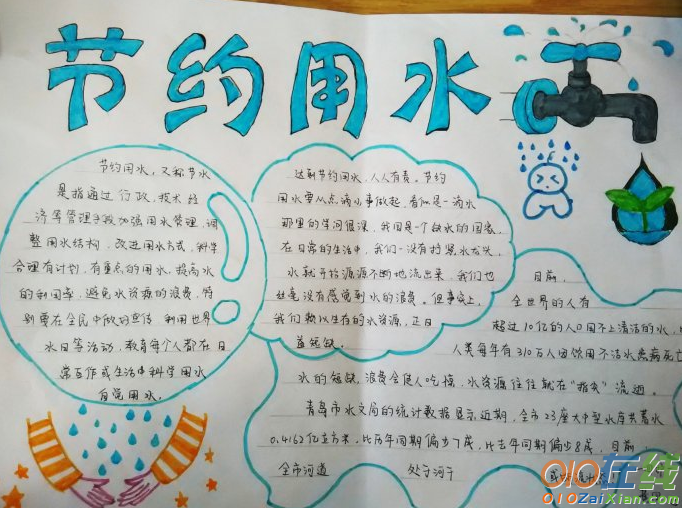 节约用水
节约用水，又称节水
是指通过行政、技术经
济等管理手段加强用水管理，调
整用水结构，改进用水方式，科学
合理有计划，有重点的用水，提高水
的利用率，避免水资源的浪费。特
别要在全民中做好宣传 利用世界
水日等活动，教育每个人都在日
常工作或生活中科学用水
自觉用水。
达到节约用水，人人有责。节约
用水要从点滴小事做起，看似是一滴水
那里的学问很深，我国是一个缺水的国家，
在日常的生活中，我们一没有拧紧水龙头，
水就开始源源不断地流出来，我们也
丝毫没有感觉到水的浪费。但事实上，
我们赖以生存的水资源，正日
益短缺。
目前，
全世界的人有
超过10亿的人口用不上清洁的水，
人类每年有310万人因饮用不洁水患病死亡
水的短缺，浪费会使人吃惊，水资源往往就在“指尖”流逝。
青岛市水文局的统计数据显示，近期，全市23座大中型水库共蓄水
0.4162亿立方米，比历年同期偏少7成，比去年同期偏少8成，目前，
全市河道 处于河干
010在线
010ZaiXian.com